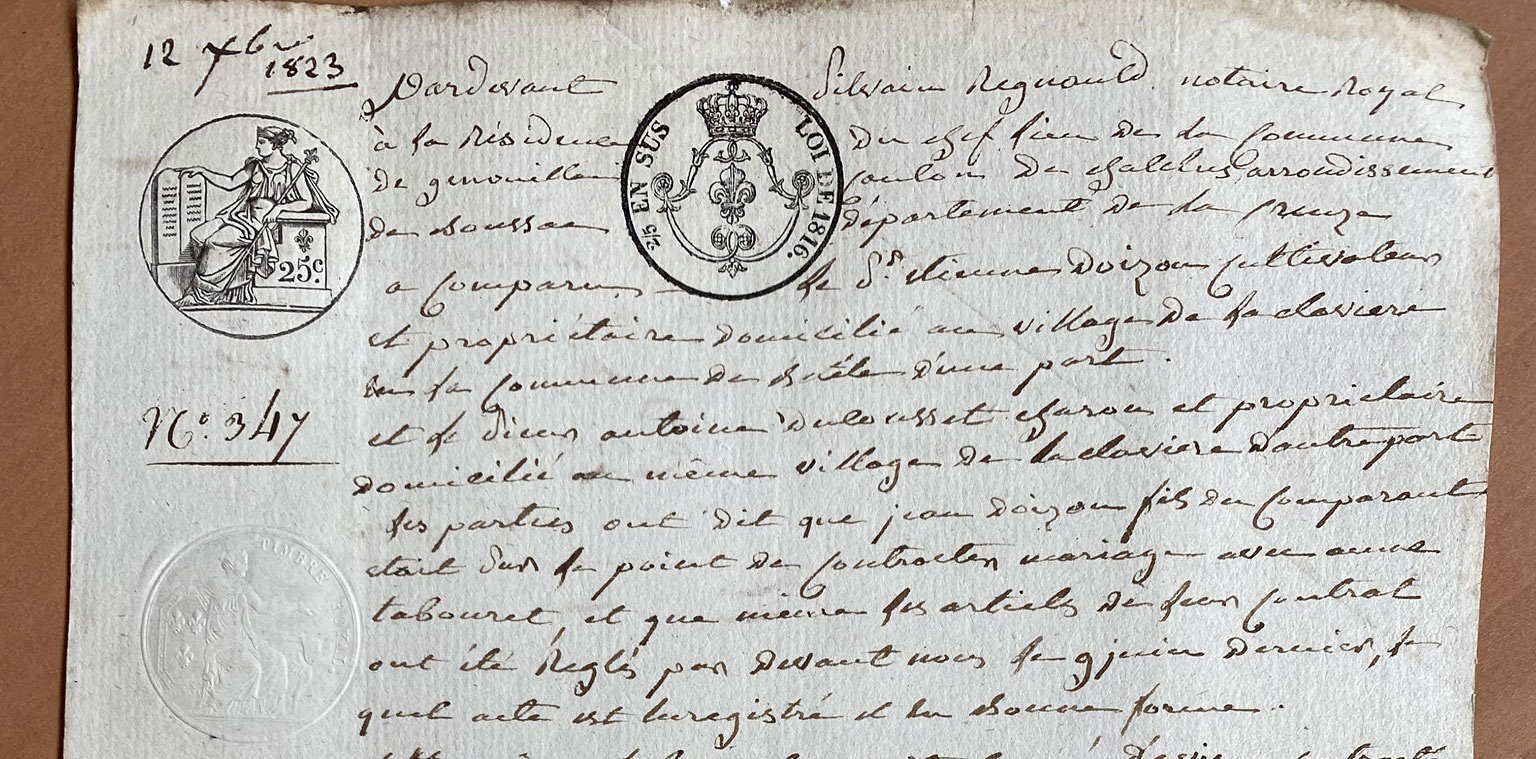 12 Xbre
1823
Pardevant Silvain Regnauld notaire Royal
à la Résidence du chef lieu de la Commune
2/5 EN SUS LOI DE 1816.
de genouillac canton de chatelus arrondissement
de boussac département de la Creuze
25.c
a Comparu le Sr. etienne doizon cultivateur
et propriétaire domicilié au village de la claviere
en la Commune de d'une part.
No. 347
et le sieur antoine dulousset charon et proprietaire
domicilié au meme village de la claviere d'autre part
les parties ont dit que jean doizon fils du comparant
etait sur le point de contracter mariage avec anne
TIMBRE ROYAL
tabouret, et que même les articles de leur contrat
ont été Reglés par devant nous le 9 juin dernier, le
quel acte est Enregistré et en bonne forme.